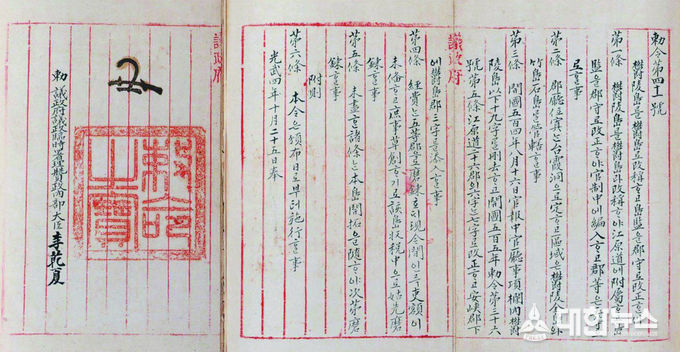 勅令第四十一號
鬱陵島를鬱島로改稱ᄒᆞ고島監을郡守로改正ᄒᆞᆫ件
第一條 鬱陵島를鬱島라改稱ᄒᆞ야江原道에附屬ᄒᆞ고島
監을郡守로改正ᄒᆞ야官制中에編入ᄒᆞ고郡等은五等
으로ᄒᆞᆯ事
第二條 郡廳位寘ᄂᆞᆫ台霞洞으로定ᄒᆞ고區域은鬱陵全島와
竹島石島를管轄ᄒᆞᆯ事
第三條 開國五百四年八月十六日官報中官廳事項欄內鬱
陵島以下十九字를刪去ᄒᆞ고開國五百五年勅令第三十六
號第五條江原道二十六郡의六字ᄂᆞᆫ七字로改正ᄒᆞ고安峽郡下
議政府
에鬱島郡三字를添入ᄒᆞᆯ事
第四條 經費ᄂᆞᆫ五等郡으로磨鍊호ᄃᆡ現今間인즉吏額이
未備ᄒᆞ고庶事草創ᄒᆞ기로該島收稅中으로姑先磨
鍊ᄒᆞᆯ事
第五條 未盡ᄒᆞᆫ諸條ᄂᆞᆫ本島開拓을隨ᄒᆞ야次第磨
鍊ᄒᆞᆯ事
附則
第六條 本令은頒布日로부터施行ᄒᆞᆯ事
光武四年十月二十五日奉
議政府
勅命之寶
勅 議政府議政臨時署理贊政內部大臣李乾夏
대한뉴스